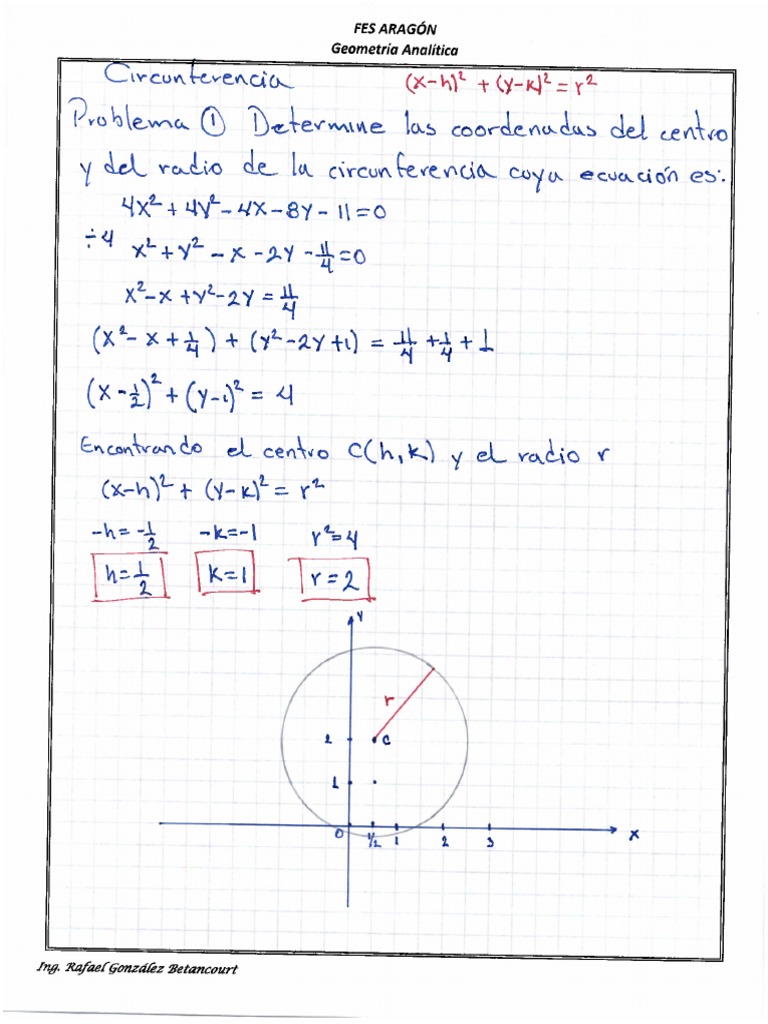 FES ARAGÓN
Geometría Analítica
Circunferencia (x-h)² + (y-k)² = r²
Problema ① Determine las coordenadas del centro
y del radio de la circunferencia cuya ecuación es:
4x² + 4y² - 4x - 8y - 11 = 0
÷4 x² + y² - x - 2y - 11/4 = 0
x² - x + y² - 2y = 11/4
(x² - x + 1/4) + (y² - 2y + 1) = 11/4 + 1/4 + 1
(x - 1/2)² + (y - 1)² = 4
Encontrando el centro C(h, k) y el radio r
(x-h)² + (y-k)² = r²
-h = -1/2 -k = -1 r² = 4
h = 1/2 k = 1 r = 2
y
r
2 C
1
0 1/2 1 2 3 x
Ing. Rafael González Betancourt